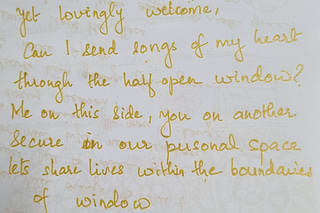 yet lovingly welcome,
Can I send songs of my heart
through the half open window?
Me on this side, you on another
Secure in our pusonal space
lets share lives within the boundaries
of window